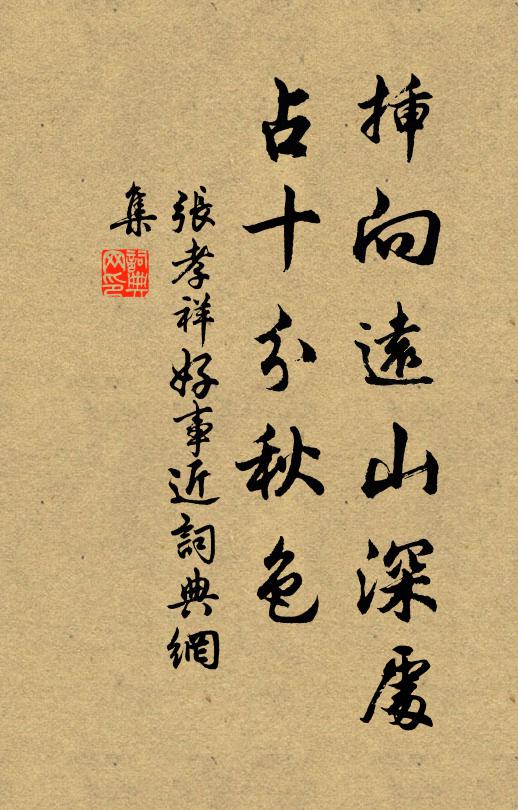 插向遠山深處
占十分秋色
張孝祥好事近詞典網
集
詞典
网印